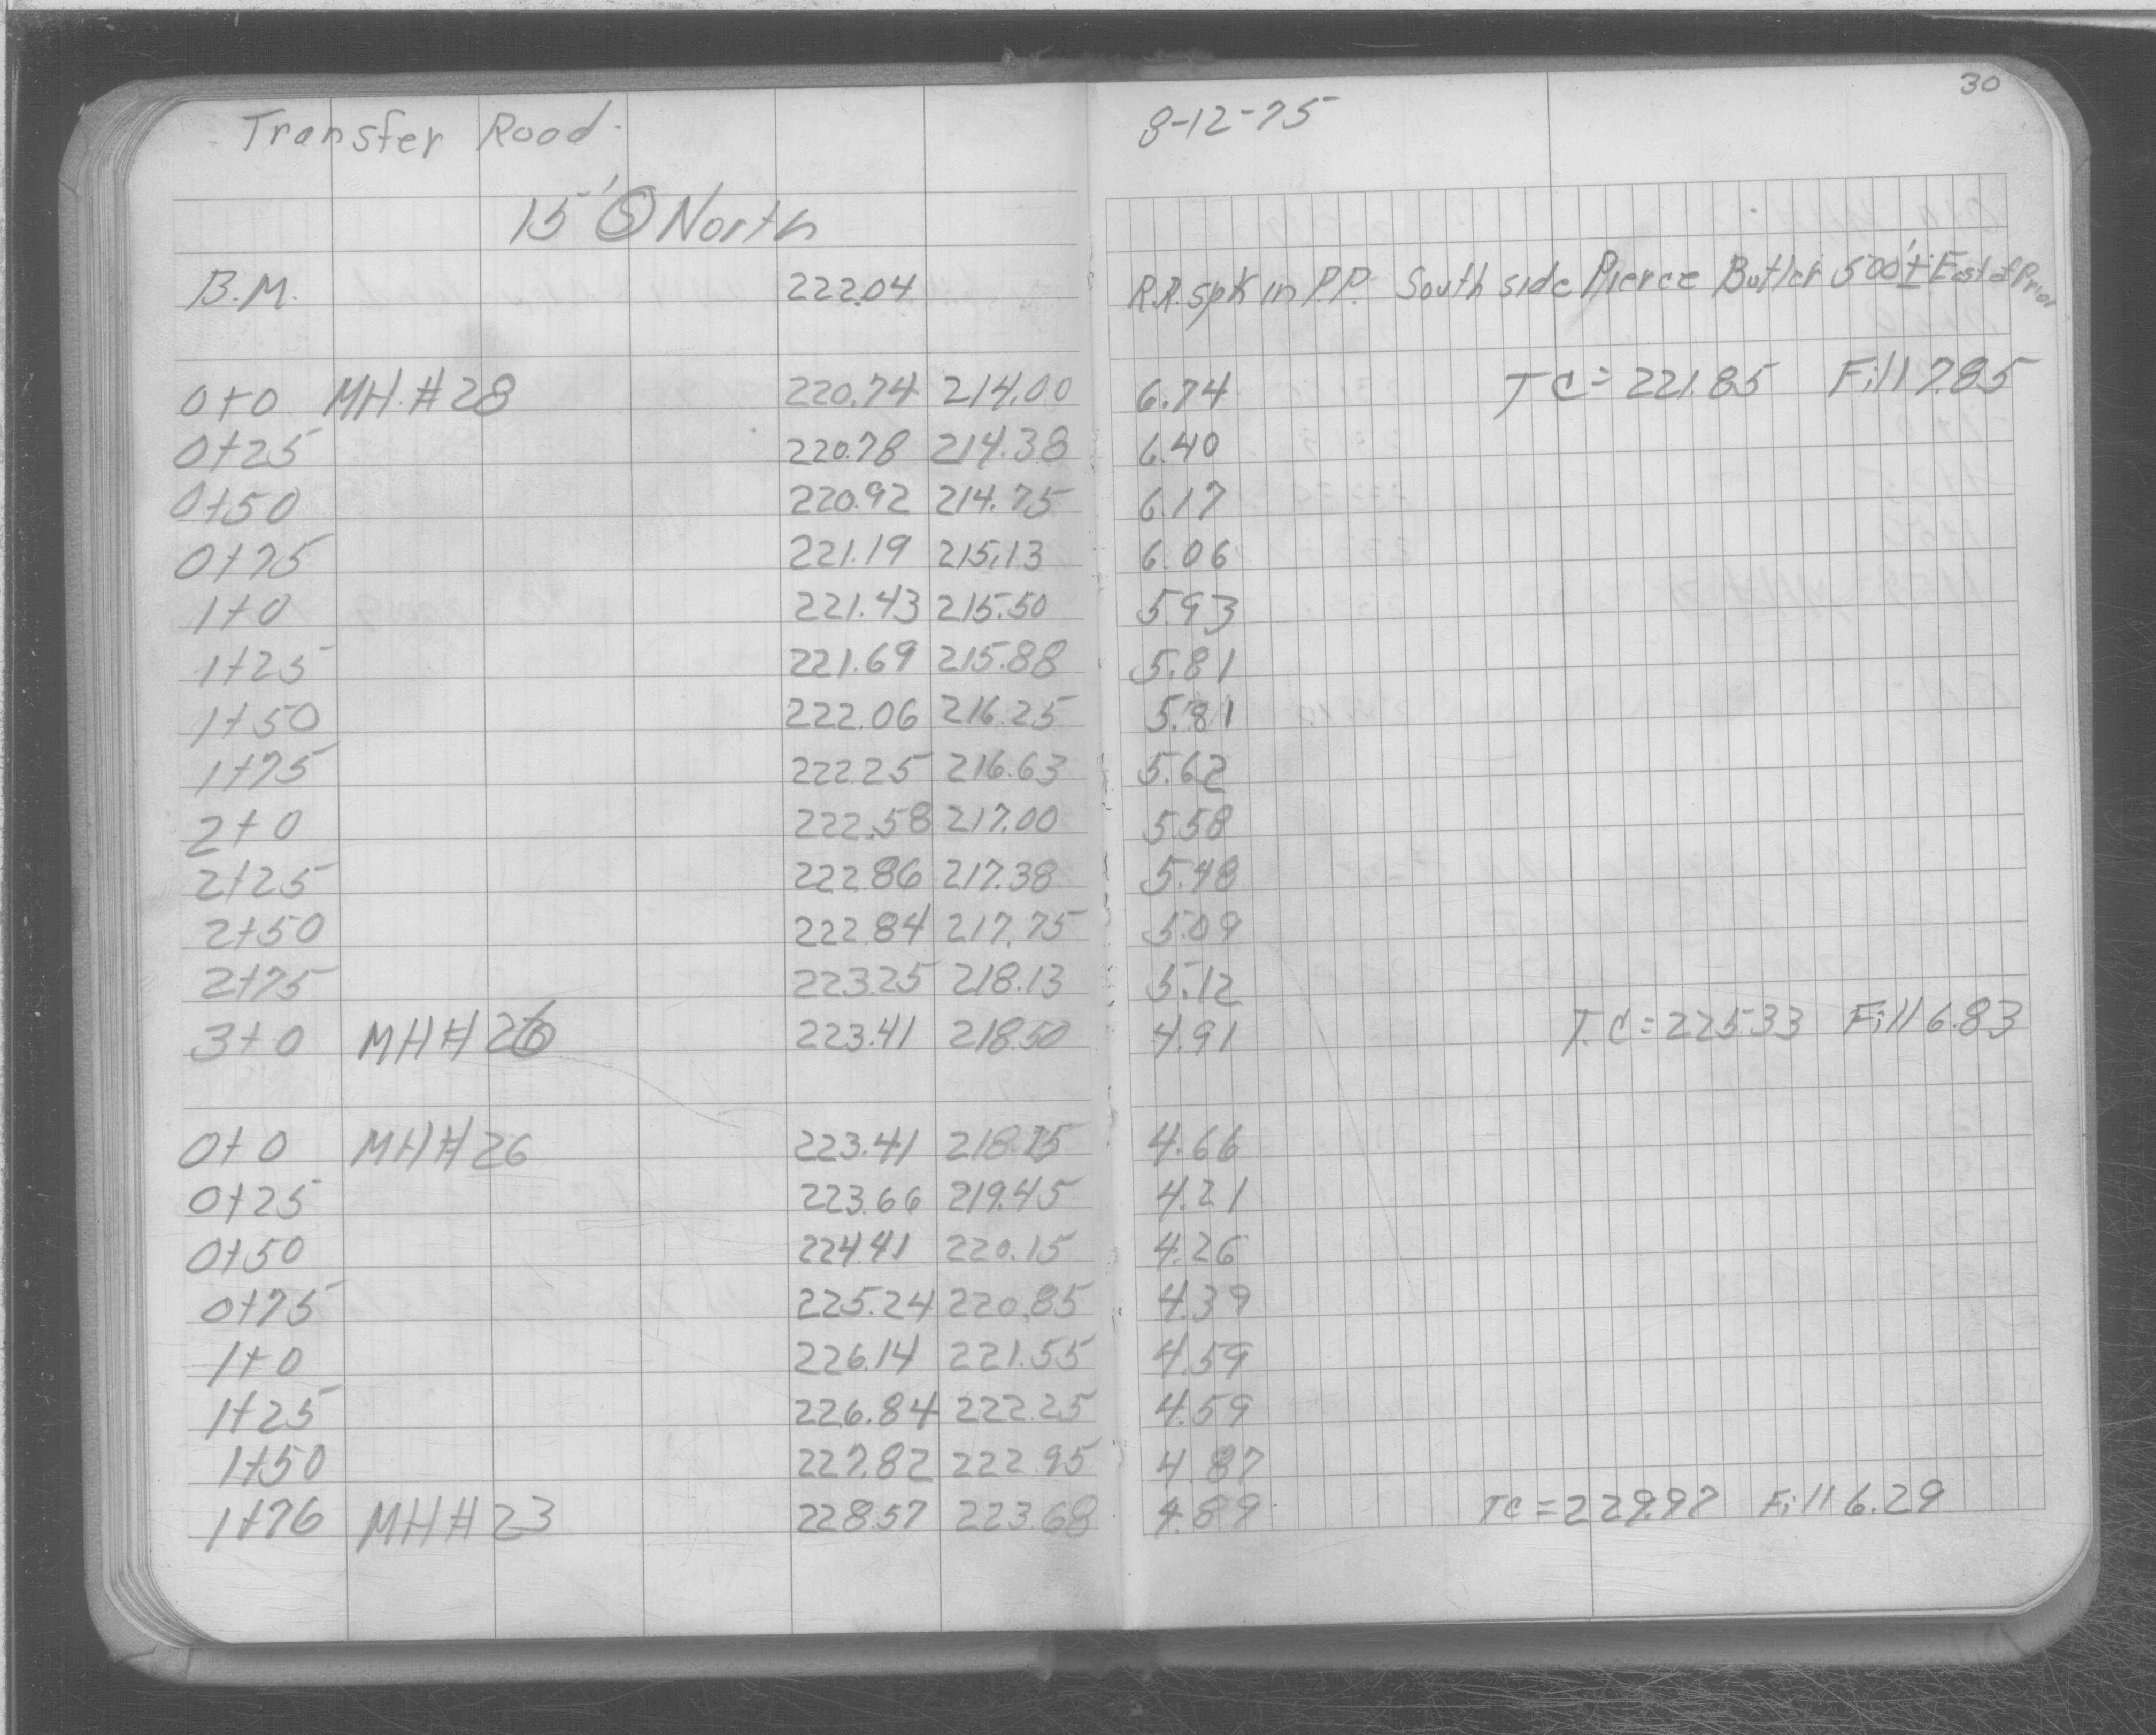 30
Transfer Road. 8-12-75
15' Ⓢ North
B.M. 222.04 R.R. spk in P.P. South side Pierce Butler 500'± East of Prior
0+0 MH.#28 220.74 214.00 6.74 TC=221.85 Fill 7.85
0+25 220.78 214.38 6.40
0+50 220.92 214.75 6.17
0+75 221.19 215.13 6.06
1+0 221.43 215.50 5.93
1+25 221.69 215.88 5.81
1+50 222.06 216.25 5.81
1+75 222.25 216.63 5.62
2+0 222.58 217.00 5.58
2+25 222.86 217.38 5.48
2+50 222.84 217.75 5.09
2+75 223.25 218.13 5.12
3+0 MH#26 223.41 218.50 4.91 T.C=225.33 Fill 6.83
0+0 MH#26 223.41 218.75 4.66
0+25 223.66 219.45 4.21
0+50 224.41 220.15 4.26
0+75 225.24 220.85 4.39
1+0 226.14 221.55 4.59
1+25 226.84 222.25 4.59
1+50 227.82 222.95 4.87
1+76 MH#23 228.57 223.68 4.89 TC=229.97 Fill 6.29